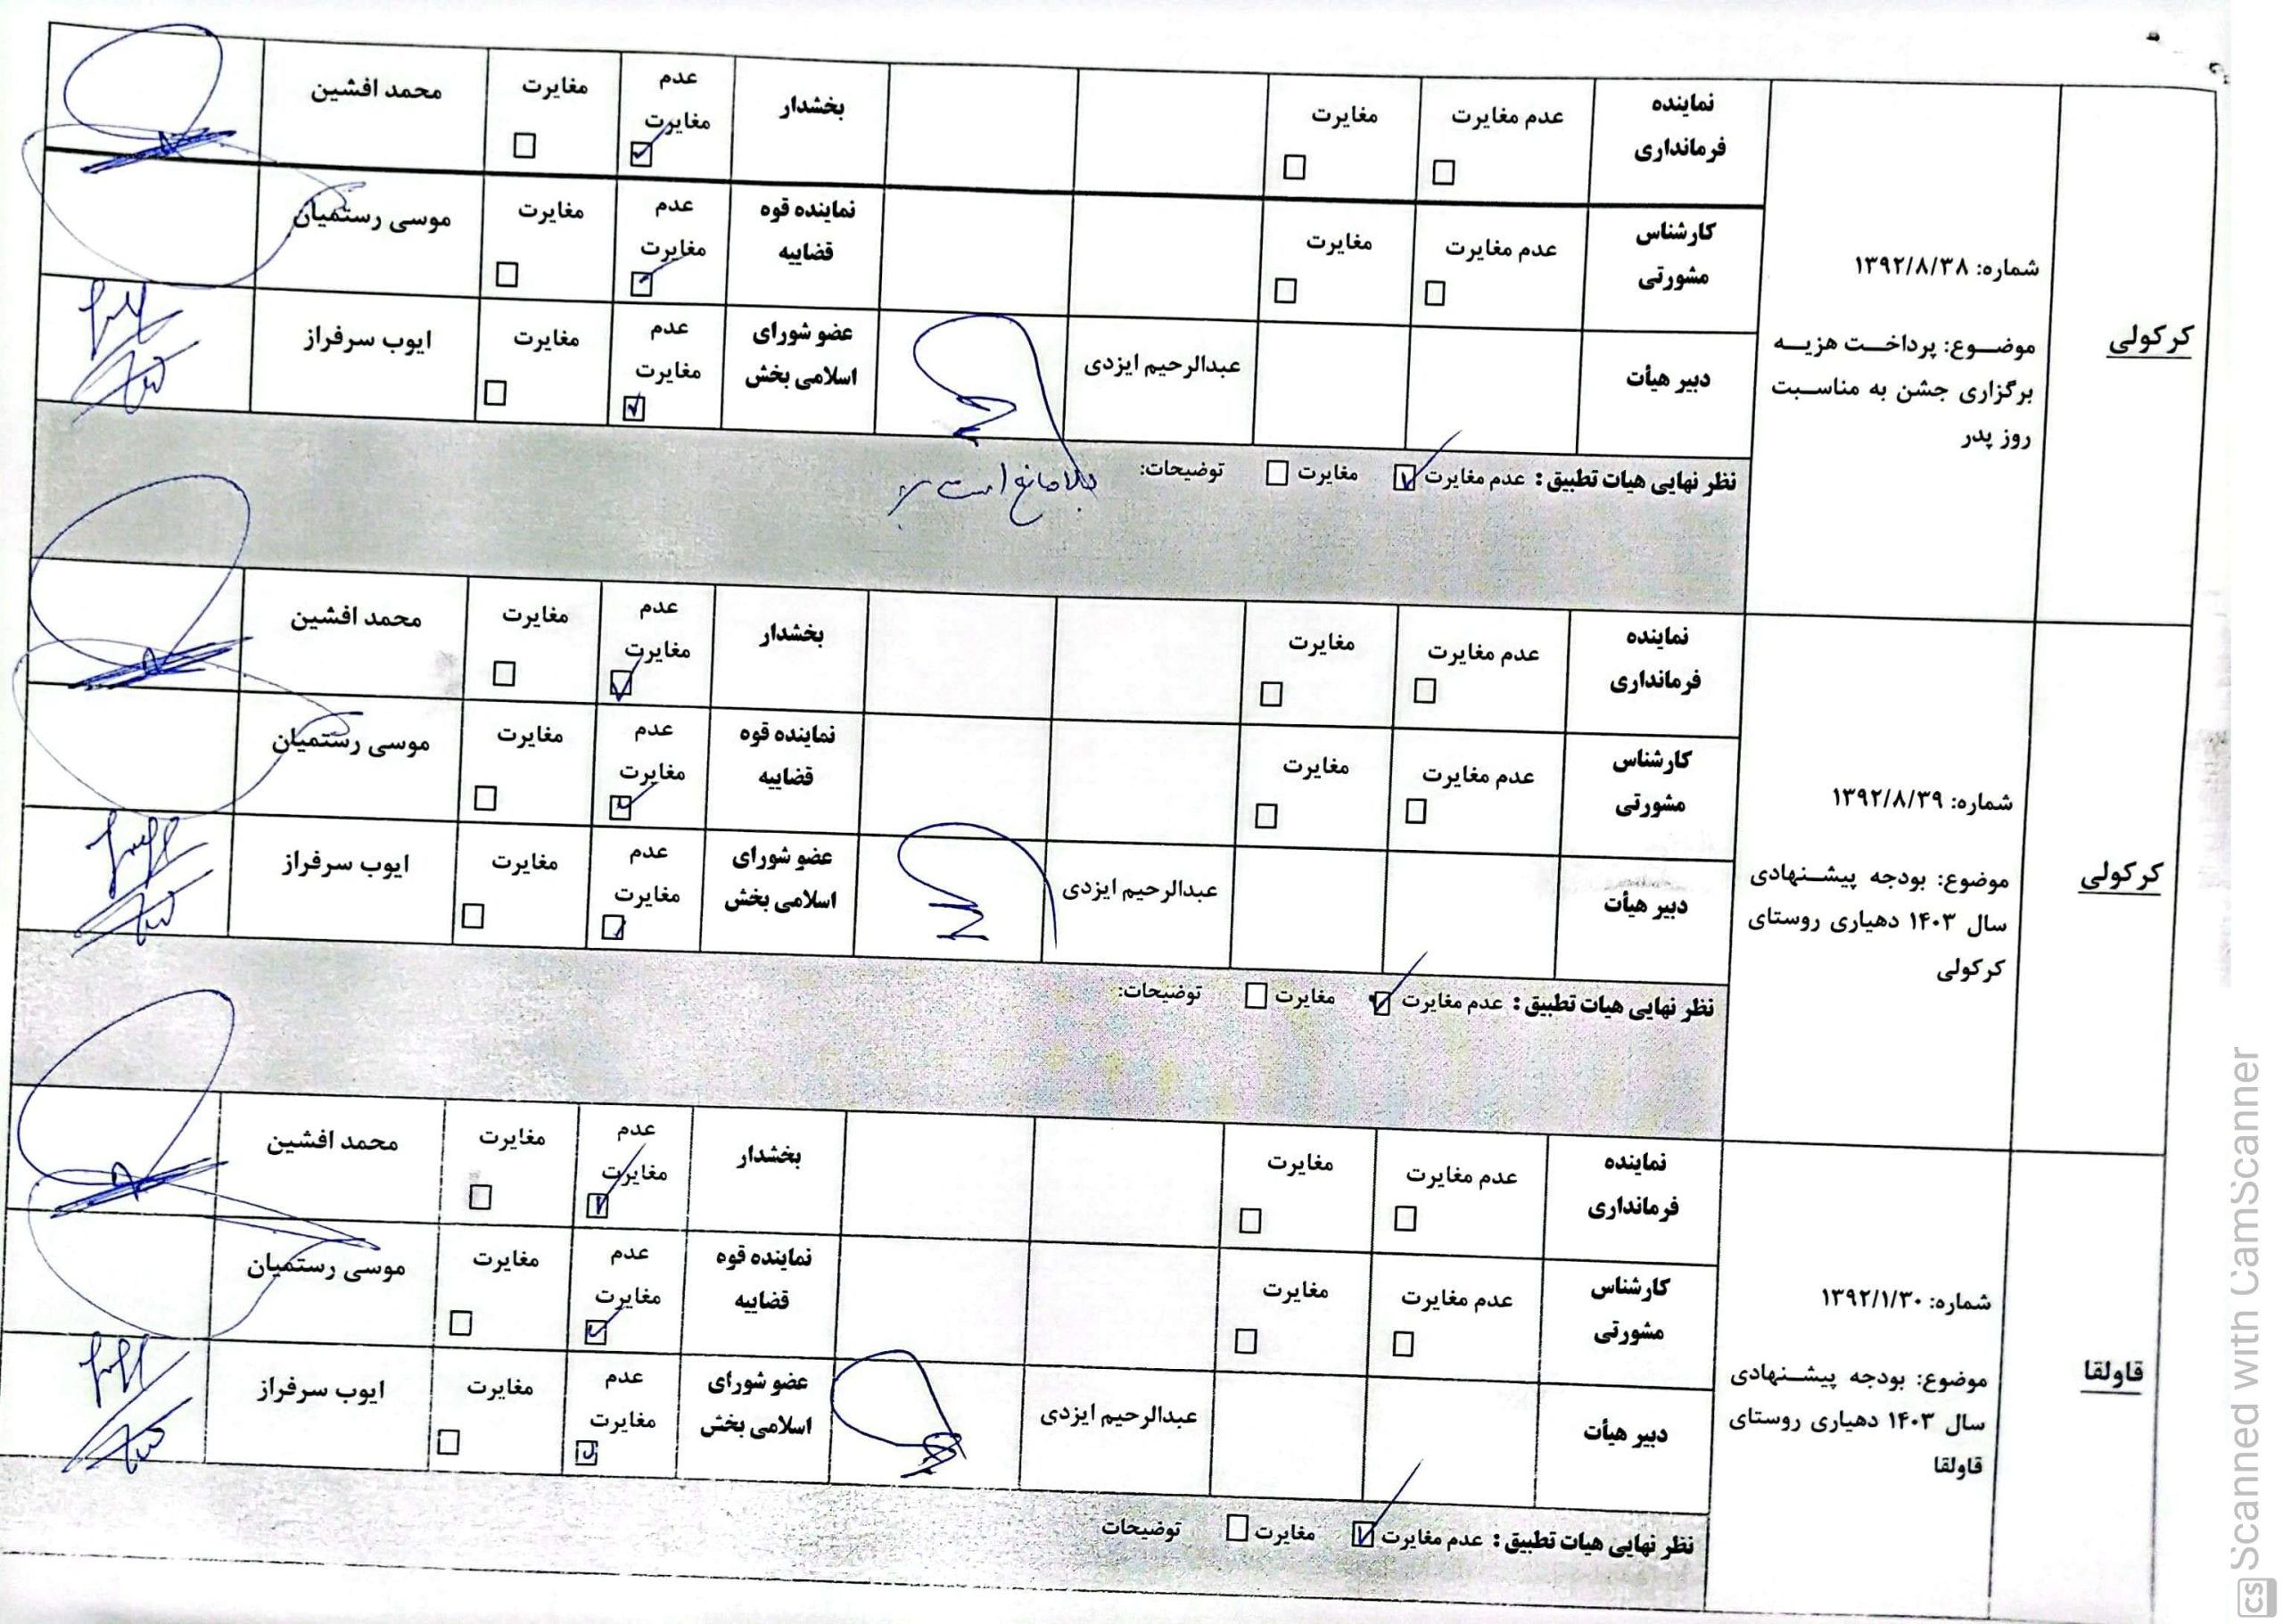 کرکولی
شماره: ۱۳۹۲/۸/۳۸
موضوع: پرداخت هزیه
برگزاری جشن به مناسبت
روز پدر
نماینده
فرمانداری
عدم مغایرت
مغایرت
بخشدار
عدم
مغایرت
مغایرت
محمد افشین
کارشناس
مشورتی
عدم مغایرت
مغایرت
نماینده قوه
قضاییه
عدم
مغایرت
مغایرت
موسی رستمیان
دبیر هیأت
عبدالرحیم ایزدی
عضو شورای
اسلامی بخش
عدم
مغایرت
مغایرت
ایوب سرفراز
نظر نهایی هیات تطبیق: عدم مغایرت مغایرت توضیحات: بلامانع است
کرکولی
شماره: ۱۳۹۲/۸/۳۹
موضوع: بودجه پیشنهادی
سال ۱۴۰۳ دهیاری روستای
کرکولی
نماینده
فرمانداری
عدم مغایرت
مغایرت
بخشدار
عدم
مغایرت
مغایرت
محمد افشین
کارشناس
مشورتی
عدم مغایرت
مغایرت
نماینده قوه
قضاییه
عدم
مغایرت
مغایرت
موسی رستمیان
دبیر هیأت
عبدالرحیم ایزدی
عضو شورای
اسلامی بخش
عدم
مغایرت
مغایرت
ایوب سرفراز
نظر نهایی هیات تطبیق: عدم مغایرت مغایرت توضیحات:
قاولقا
شماره: ۱۳۹۲/۱/۳۰
موضوع: بودجه پیشنهادی
سال ۱۴۰۳ دهیاری روستای
قاولقا
نماینده
فرمانداری
عدم مغایرت
مغایرت
بخشدار
عدم
مغایرت
مغایرت
محمد افشین
کارشناس
مشورتی
عدم مغایرت
مغایرت
نماینده قوه
قضاییه
عدم
مغایرت
مغایرت
موسی رستمیان
دبیر هیأت
عبدالرحیم ایزدی
عضو شورای
اسلامی بخش
عدم
مغایرت
مغایرت
ایوب سرفراز
نظر نهایی هیات تطبیق: عدم مغایرت مغایرت توضیحات
CS Scanned with CamScanner